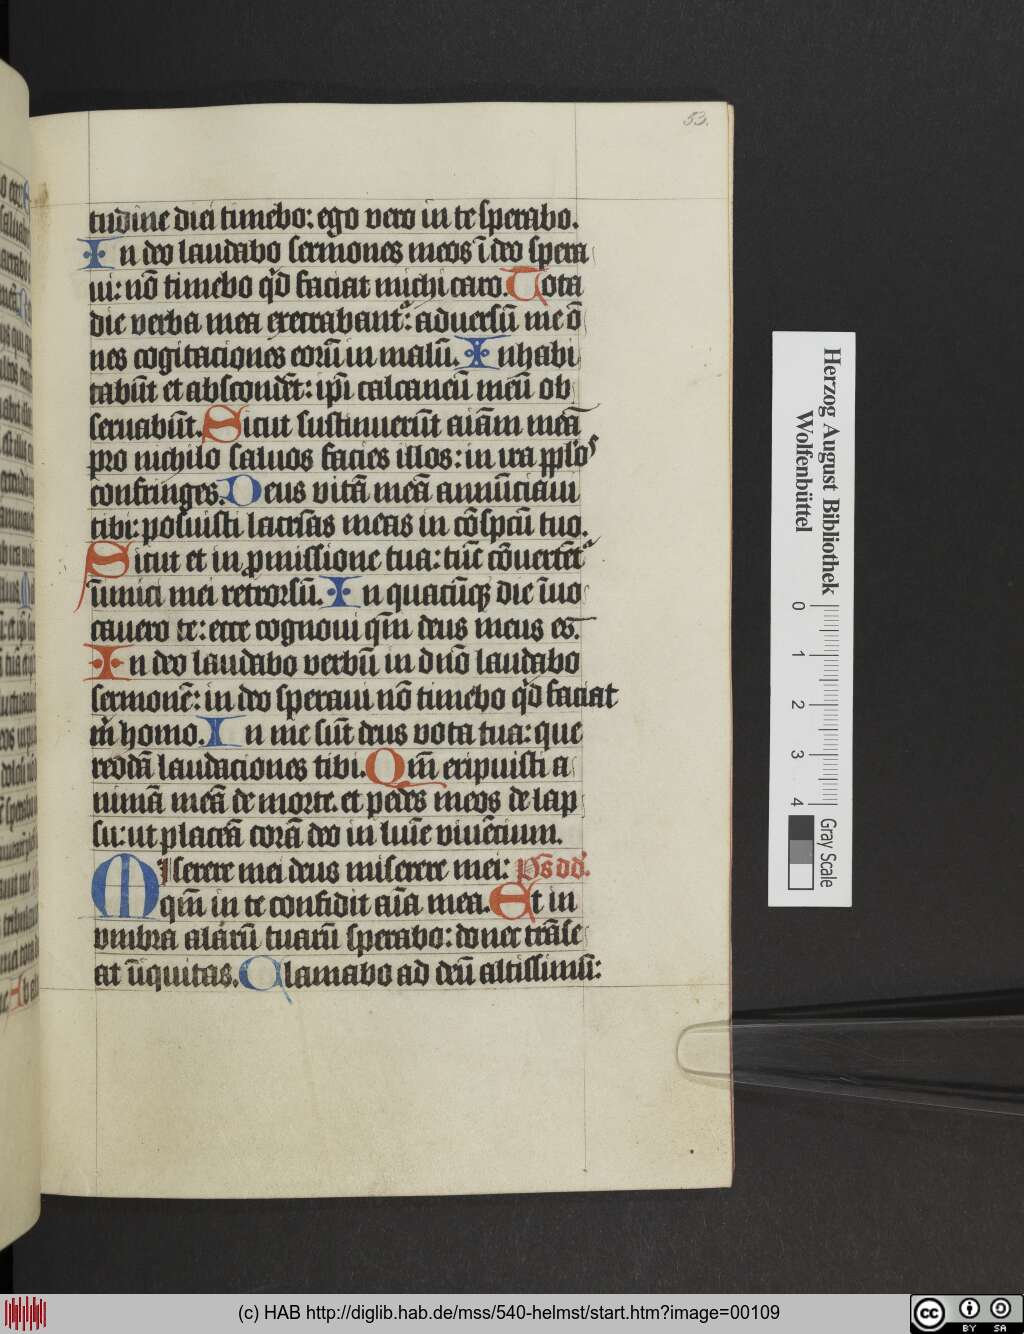 53.
tudine diei timebo: ego vero in te sperabo.
In deo laudabo sermones meos ī deo spera
ui: nō timebo qͥd faciat michi caro. Tota
die verba mea execrabant᷑: aduersū me ō
nes cogitaciones eorū in malū. Inhabi
tabūt et abscondēt: ip̄i calcaneū meū ob
seruabūt. Sicut sustinuerūt aīam meā
pro nichilo saluos facies illos: in ira pp̄los
confringes. Deus vitā meā annūciaui
tibi: posuisti lacr̄as meas in cōspcū tuo.
Sicut et in ꝓmissione tua: tūc cōuertēt᷑
īimici mei retrorsū. In quacūqꝫ die īuo
cauero te: ecce cognoui qm̄ deus meus es.
In deo laudabo verbū in dn̄o laudabo
sermonē: in deo speraui nō timebo qͥd faciat
mͥ homo. In me sūt deus vota tua: que
reddā laudaciones tibi. Qm̄ eripuisti a
nimā meā de morte. et pedes meos de lap
su: ut placeā corā deo in luīe viuēcium.
Miserere mei deus miserere mei: p̄s dd.
qm̄ in te confidit aīa mea. Et in
vmbra alarū tuarū sperabo: donec trāse
at īiquitas. Clamabo ad deū altissimū:
Herzog August Bibliothek
Wolfenbüttel
0 1 2 3 4
Gray Scale
(c) HAB http://diglib.hab.de/mss/540-helmst/start.htm?image=00109
cc BY SA